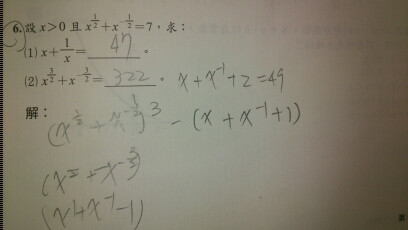 6.設 x>0 且 x^{1/2}+x^{-1/2}=7,求:
(1) x+1/x= 47 。
(2) x^{3/2}+x^{-3/2}= 322 。 x+x^{-1}+2=49
解: (x^{1/2}+x^{-1/2})^3 - (x+x^{-1}+1)
(x
(x+x^{-1}-1)
第